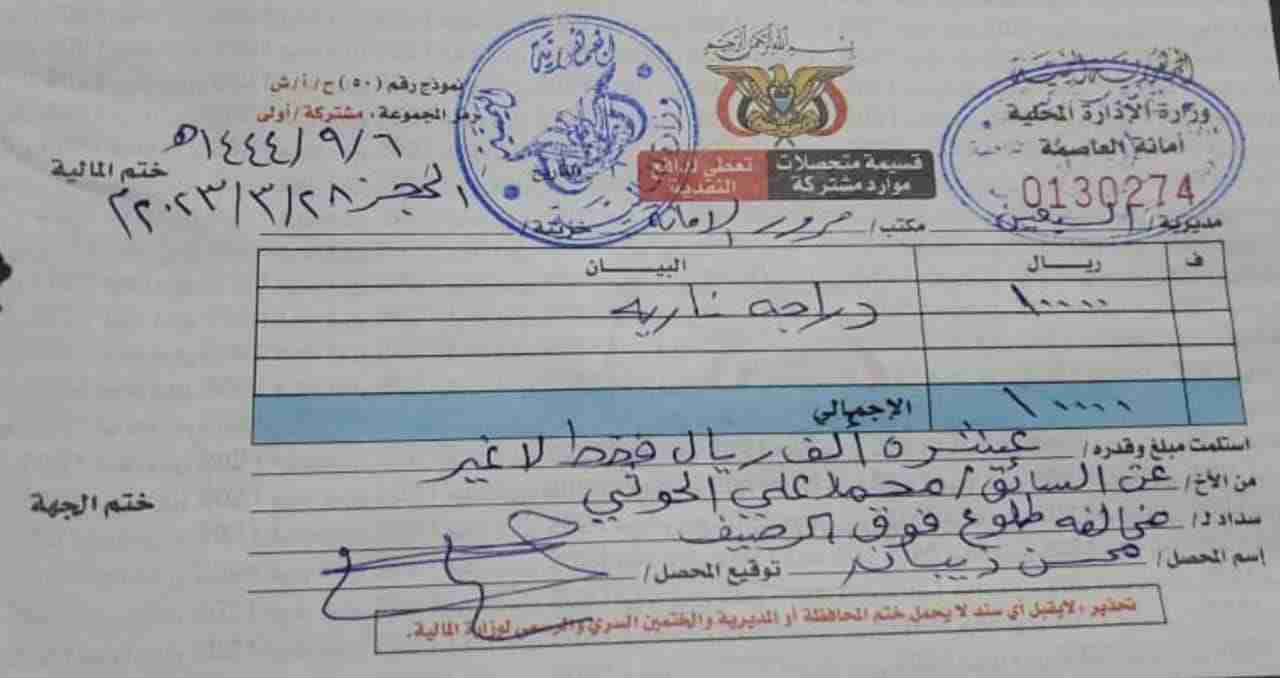 بسم الله الرحمن الرحيم
الجمهورية اليمنية
وزارة الإدارة المحلية
أمانة العاصمة
0130274
قسيمة متحصلات موارد مشتركة
تعطى لدافع النقدية
نموذج رقم (٥٠) ح/أ/ش/
رمز المجموعة، مشتركة/أولى
١٤٤٤/٩/٦هـ
ختم المالية
٢٠٢٣/٣/٢٨م
مديرية/ السبعين مكتب/ مرور الامانة خزينة/ الحجز
ف ريـال البيـــان
١٠٠٠٠ دراجه ناريه
١٠٠٠٠ الإجمالي
استلمت مبلغ وقدره/ عشره ألف ريال فقط لا غير
من الأخ/ عن السائق/ محمد علي الحوثي
ختم الجهة
سداد لـ/ مخالفه طلوع فوق الرصيف
إسم المحصل/ محسن ذيبان توقيع المحصل/
تحذير، لايقبل أي سند لا يحمل ختم المحافظة أو المديرية والختمين السري والرسمي لوزارة المالية.